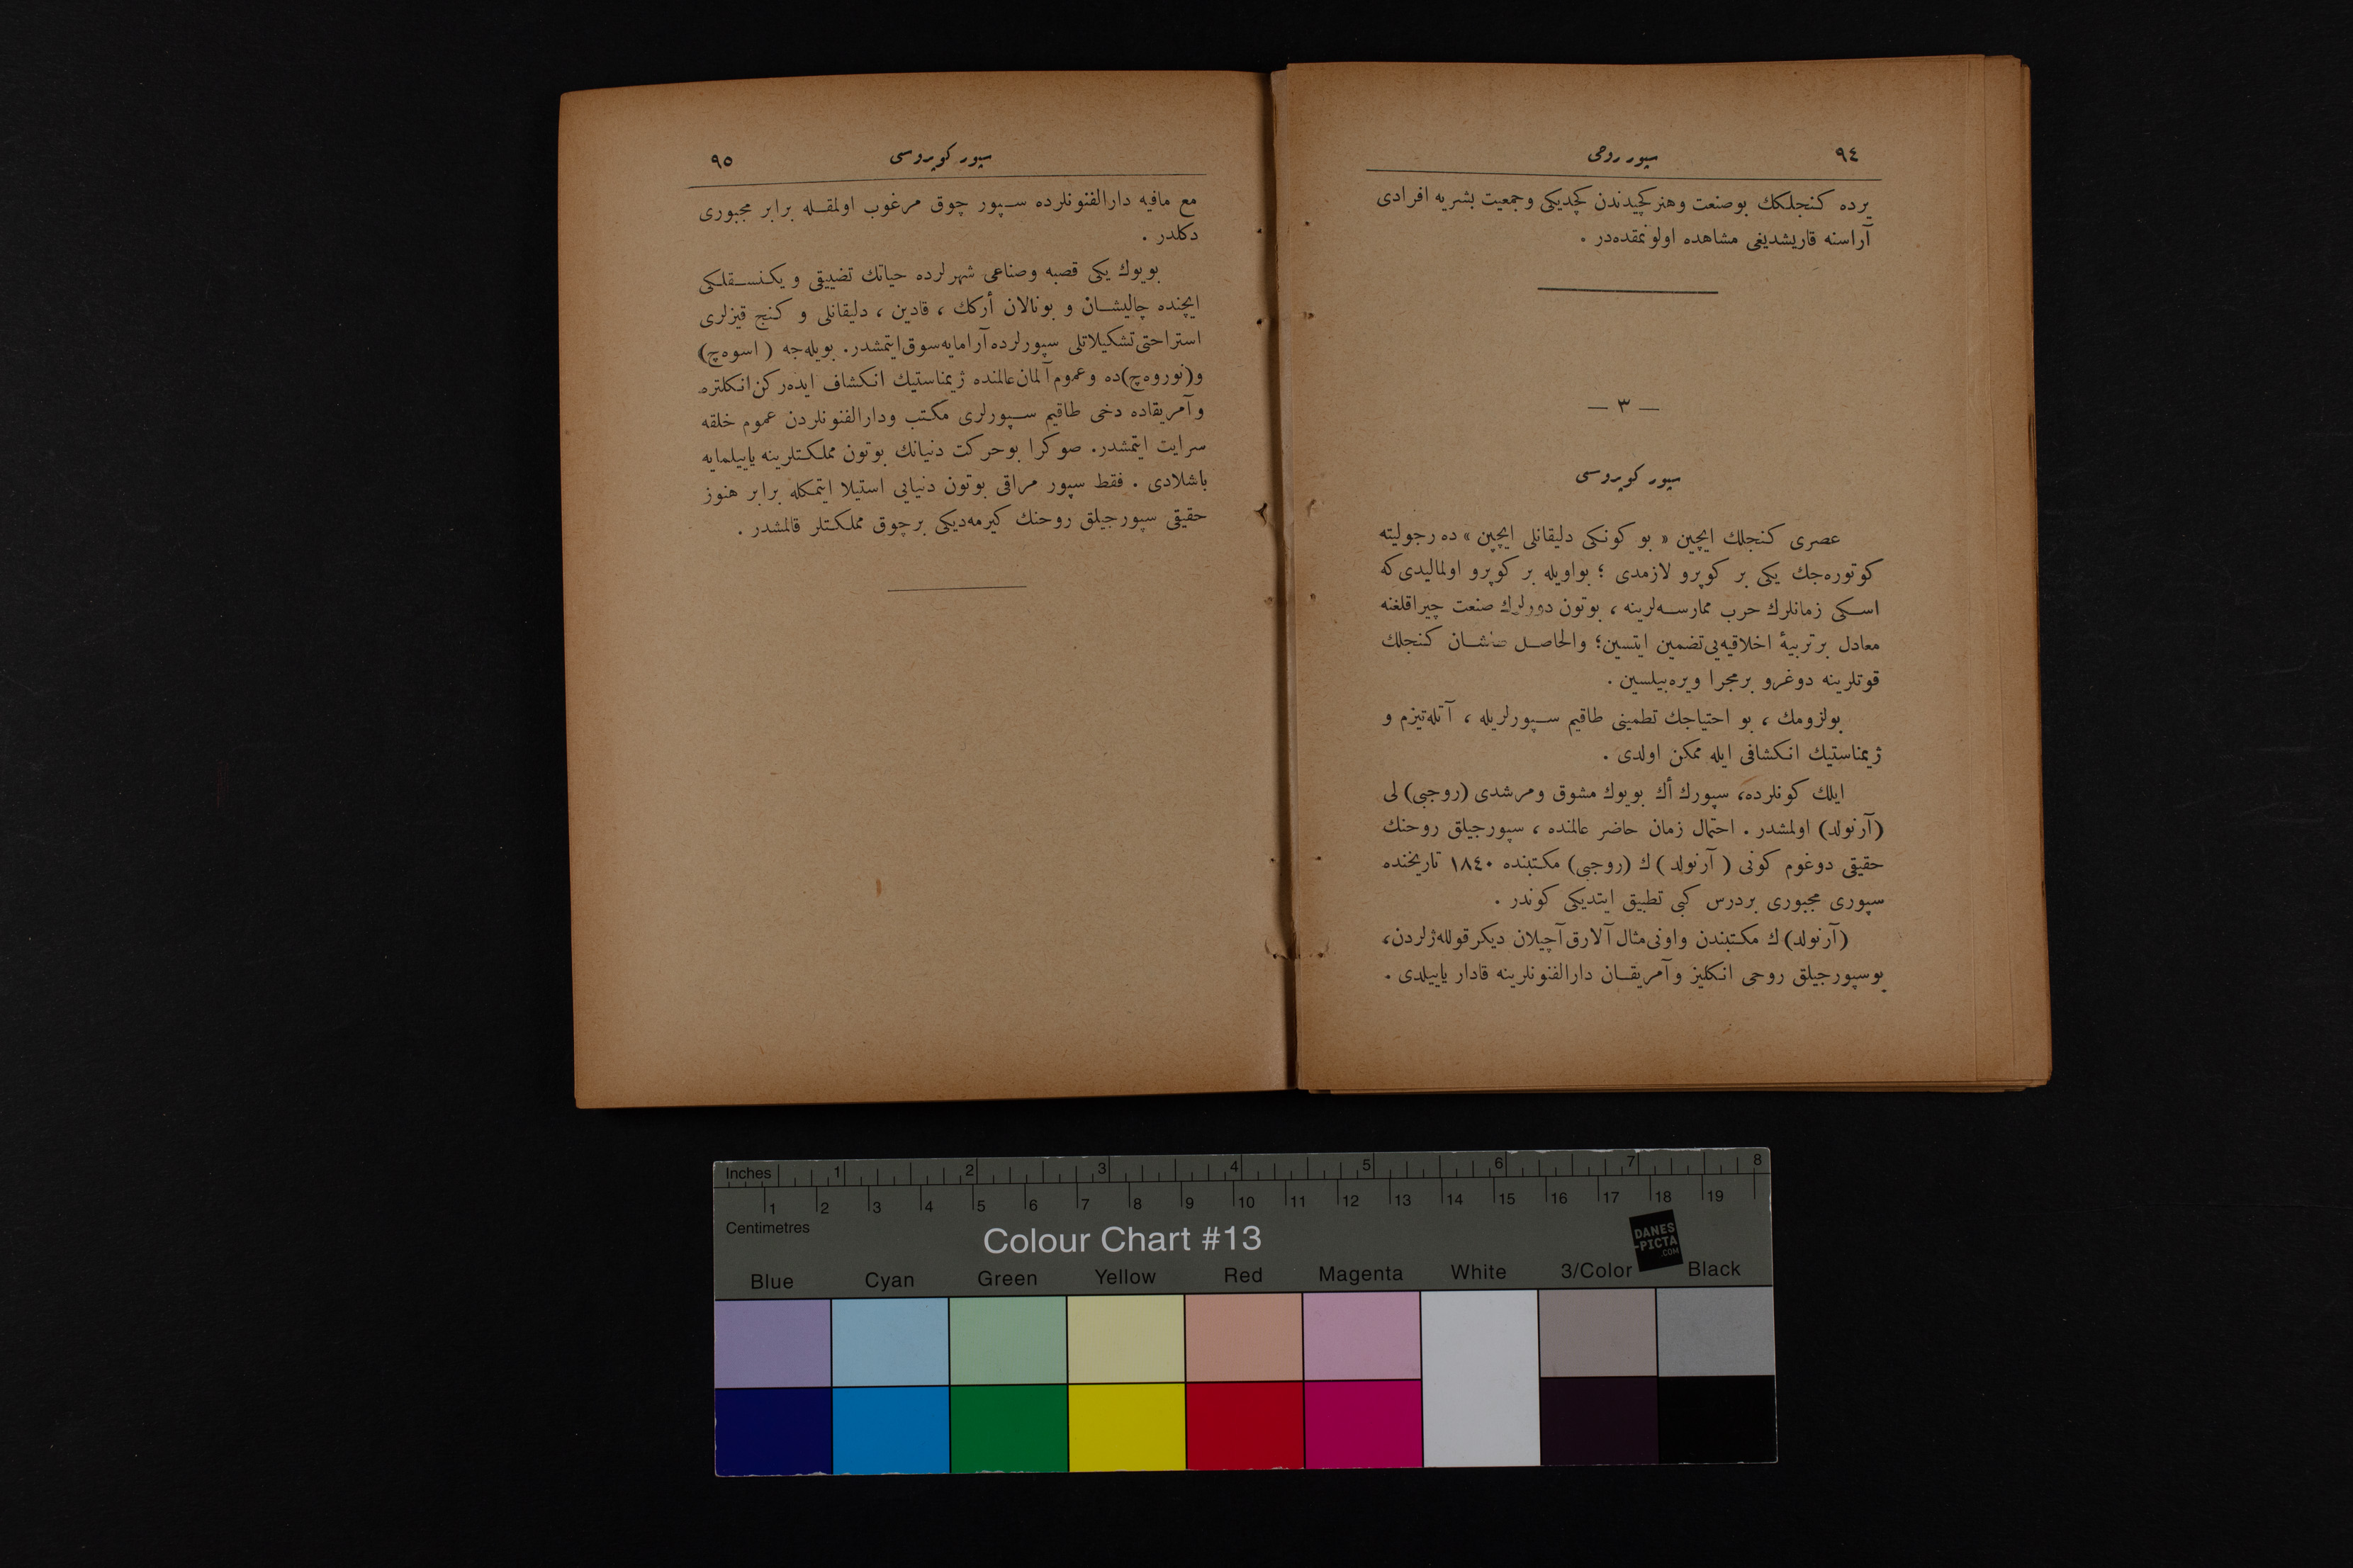 ٩٤
سپور روحی
یرده كنجلكك بو صنعت وهنر كچیدندن كچدیكی وجمعیت بشریه افرادی
آراسنه قاریشدیغی مشاهده اولونمقده‌در .
— ٣ —
سپور كوپروسی
عصری كنجلك ایچین « بو كونكی دلیقانلی ایچین » ده رجولیته
كوتوره‌جك یكی بر كوپرو لازمدی ؛ بواویله بر كوپرو اولمالیدی كه
اسكی زمانلرك حرب ممارسه‌لرینه ، بوتون دورلرك صنعت چیراقلغنه
معادل بر تربیهٔ اخلاقیه‌یی تضمین ایتسین؛ والحاصل كنجلك
قوتلرینه دوغرو بر مجرا ویره‌بیلسین .
بولزومك ، بو احتیاجك تطمینی طاقیم سپورلریله ، آتله‌تیزم و
ژیمناستیك انكشافی ایله ممكن اولدی .
ایلك كونلرده، سپورك أك بویوك مشوق ومرشدی (روجبی) لی
(آرنولد) اولمشدر . احتمال زمان حاضر عالمنده ، سپورجیلق روحنك
حقیقی دوغوم كونی ( آرنولد ) ك (روجبی) مكتبنده ١٨٤٠ تاریخنده
سپوری مجبوری بردرس كبی تطبیق ایتدیكی كوندر .
(آرنولد) ك مكتبندن واونی مثال آلارق آچیلان دیكر قولله‌ژلردن،
بوسپورجیلق روحی انكلیز وآمریقان دارالفنونلرینه قادار یاییلدی .
سپور كوپروسی
٩٥
مع مافیه دارالفنونلرده سپور چوق مرغوب اولمقله برابر مجبوری
دكلدر .
بویوك یكی قصبه وصناعی شهرلرده حیاتك تضییقی و یكنسقلكی
ایچنده چالیشان و بونالان أركك ، قادین ، دلیقانلی و كنج قیزلری
استراحتی تشكیلاتلی سپورلرده آرامایه سوق ایتمشدر. بویله‌جه ( اسوه‌چ)
و(نوروه‌چ)ده وعموم آلمان عالمنده ژیمناستیك انكشاف ایده‌ركن انكلتره
وآمریقاده دخی طاقیم سپورلری مكتب ودارالفنونلردن عموم خلقه
سرایت ایتمشدر. صوكرا بوحركت دنیانك بوتون مملكتلرینه یاییلمایه
باشلادی . فقط سپور مراقی بوتون دنیایی استیلا ایتمكله برابر هنوز
حقیقی سپورجیلق روحنك كیرمه‌دیكی برچوق مملكتلر قالمشدر .
Inches 1 2 3 4 5 6 7 8
1 2 3 4 5 6 7 8 9 10 11 12 13 14 15 16 17 18 19
Centimetres
Colour Chart #13
DANES
-PICTA
.COM
Blue Cyan Green Yellow Red Magenta White 3/Color Black